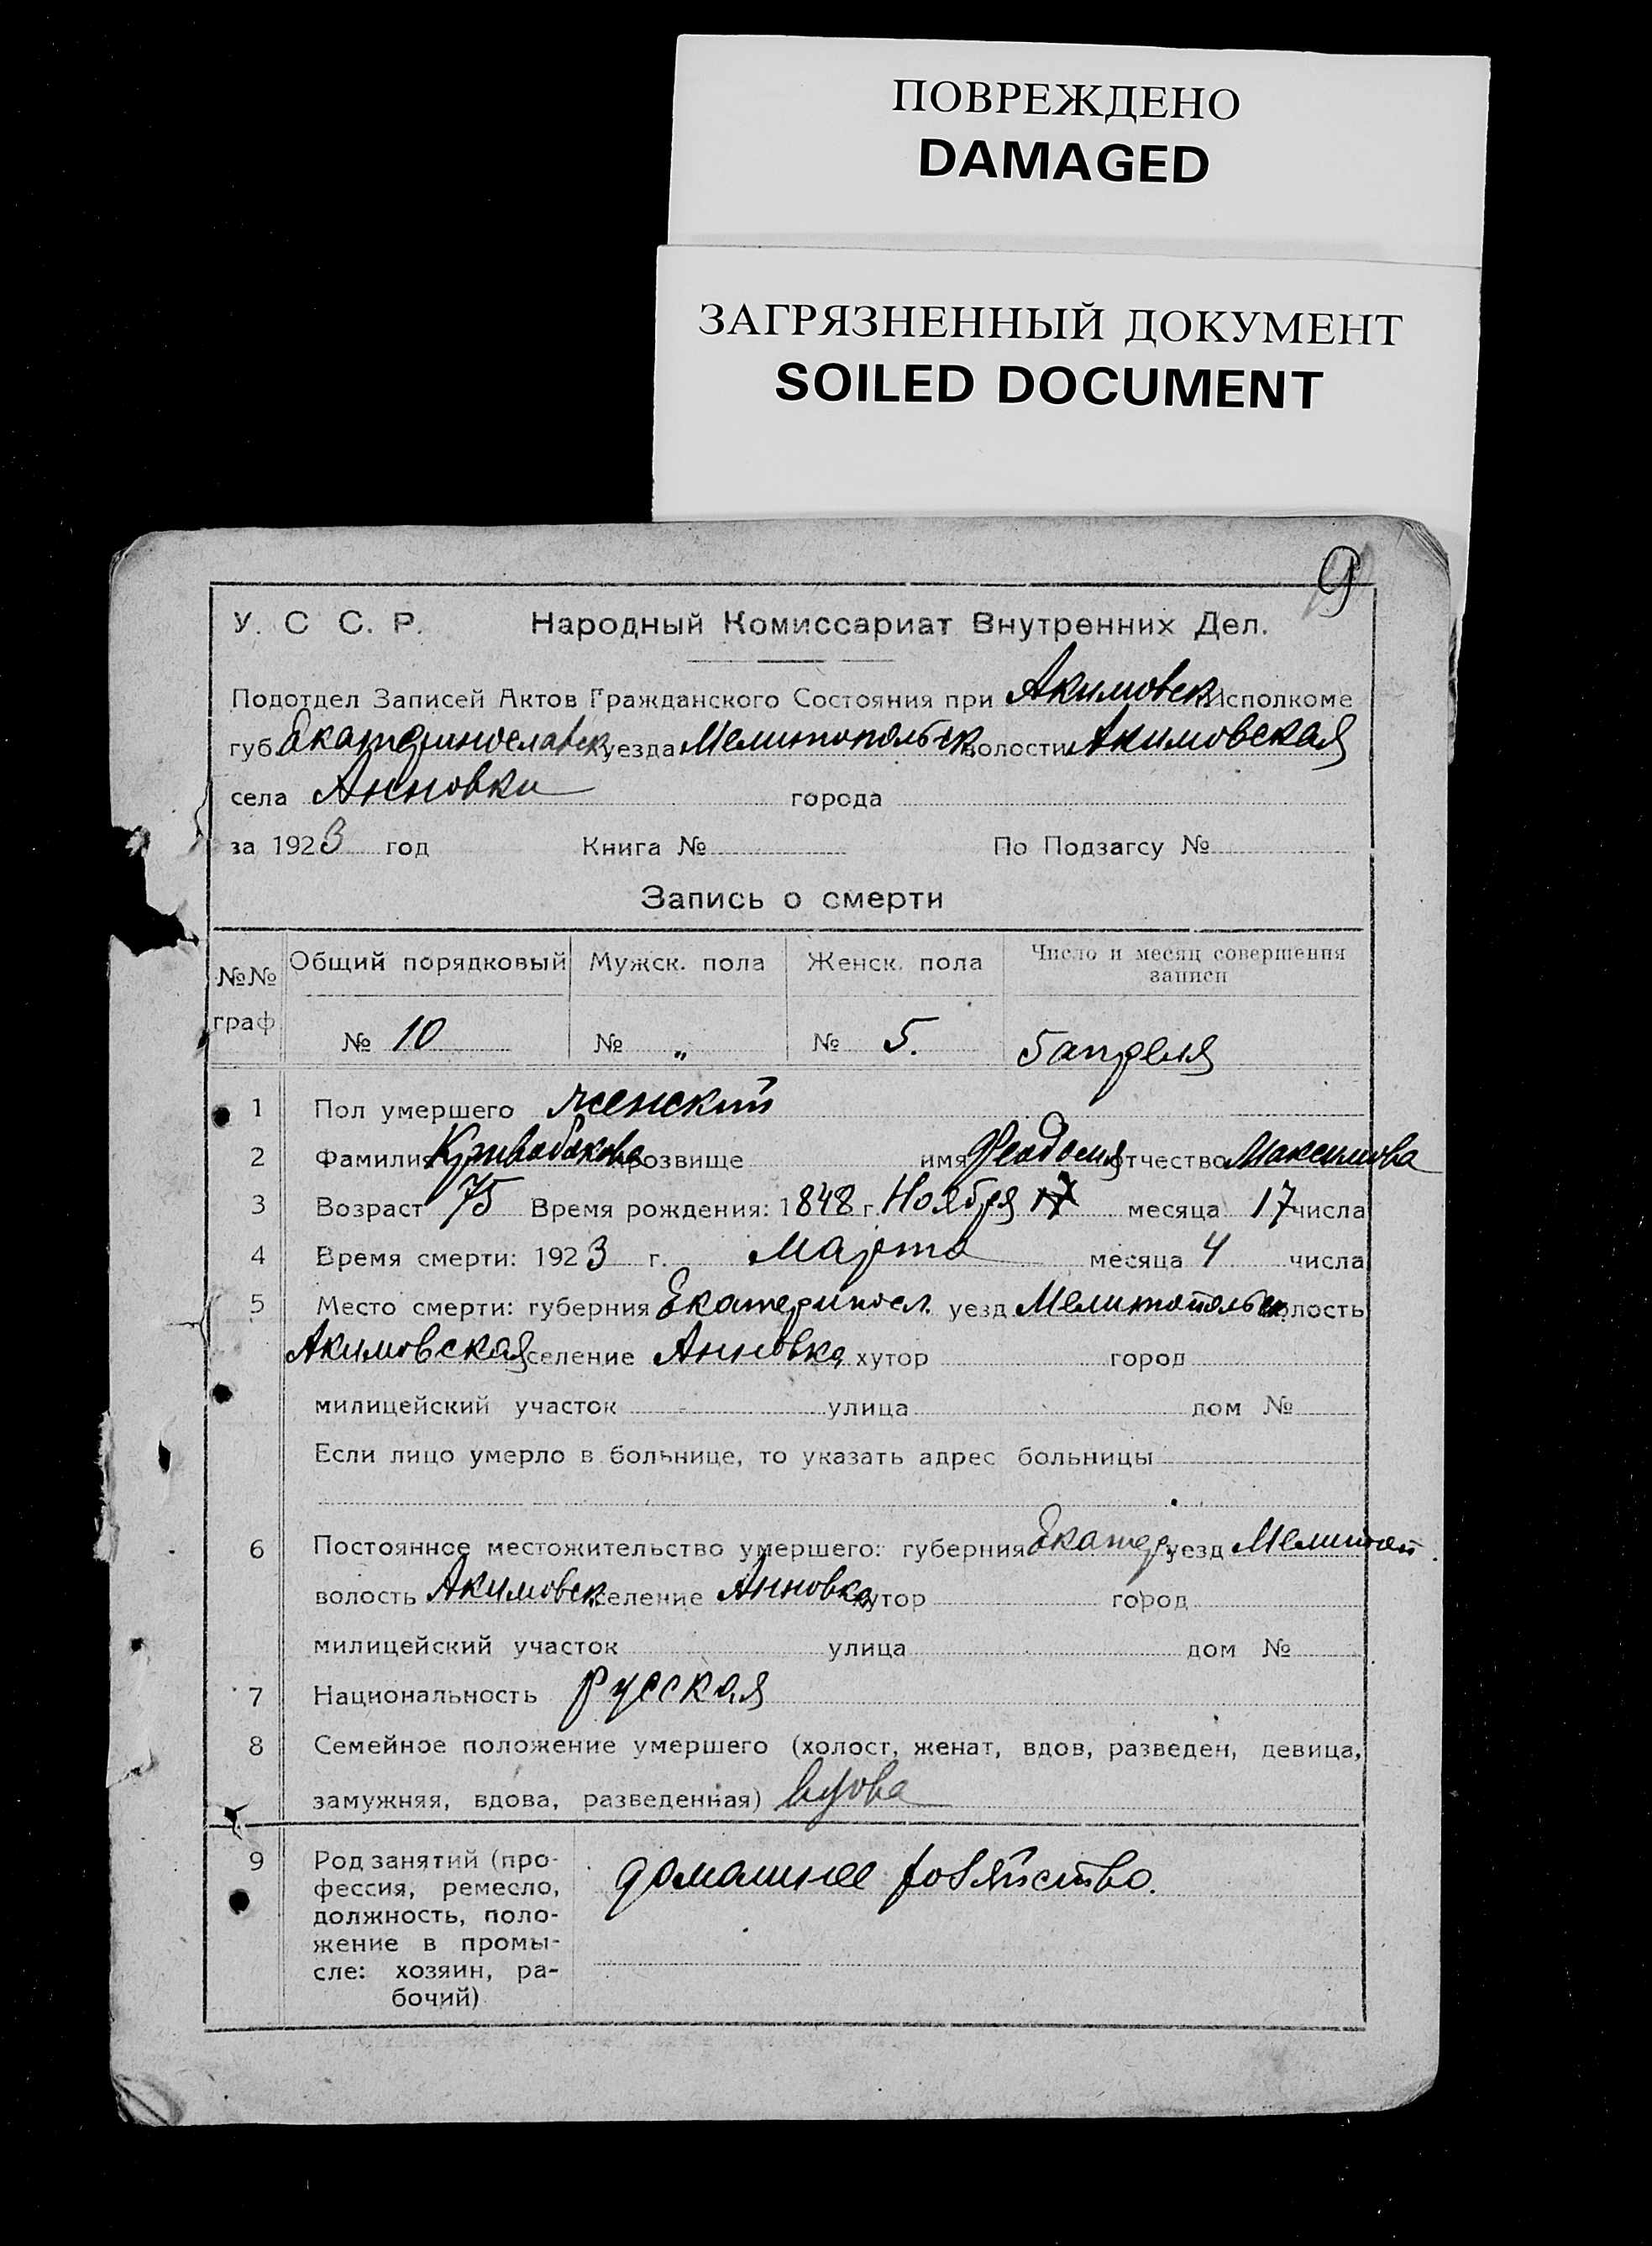 ПОВРЕЖДЕНО
DAMAGED
ЗАГРЯЗНЕННЫЙ ДОКУМЕНТ
SOILED DOCUMENT
9
У. С С. Р. Народный Комиссариат Внутренних Дел.
Подотдел Записей Актов Гражданского Состояния при Акимовск Исполкоме
губ. Екатеринославск уезда Мелитопольск волости Акимовская
села Анновки города
за 1923 год Книга № По Подзагсу №
Запись о смерти
№№ граф Общий порядковый Мужск. пола Женск. пола Число и месяц совершения записи
№ 10 № „ № 5. 5 апреля
1 Пол умершего женский
2 Фамилия Кривобокова прозвище имя Феодосия отчество Максимова
3 Возраст 75 Время рождения: 1848 г. Ноября 17 месяца 17 числа
4 Время смерти: 1923 г. Марта месяца 4 числа
5 Место смерти: губерния Екатериносл. уезд Мелитопольск волость
Акимовская селение Анновка хутор город
милицейский участок улица дом №
Если лицо умерло в больнице, то указать адрес больницы
6 Постоянное местожительство умершего: губерния Екатер. уезд Мелитоп.
волость Акимовск селение Анновка хутор город
милицейский участок улица дом №
7 Национальность русская
8 Семейное положение умершего (холост, женат, вдов, разведен, девица,
замужняя, вдова, разведенная) вдова
9 Род занятий (про-
фессия, ремесло,
должность, поло-
жение в промы-
сле: хозяин, ра-
бочий)
домашнее хозяйство.